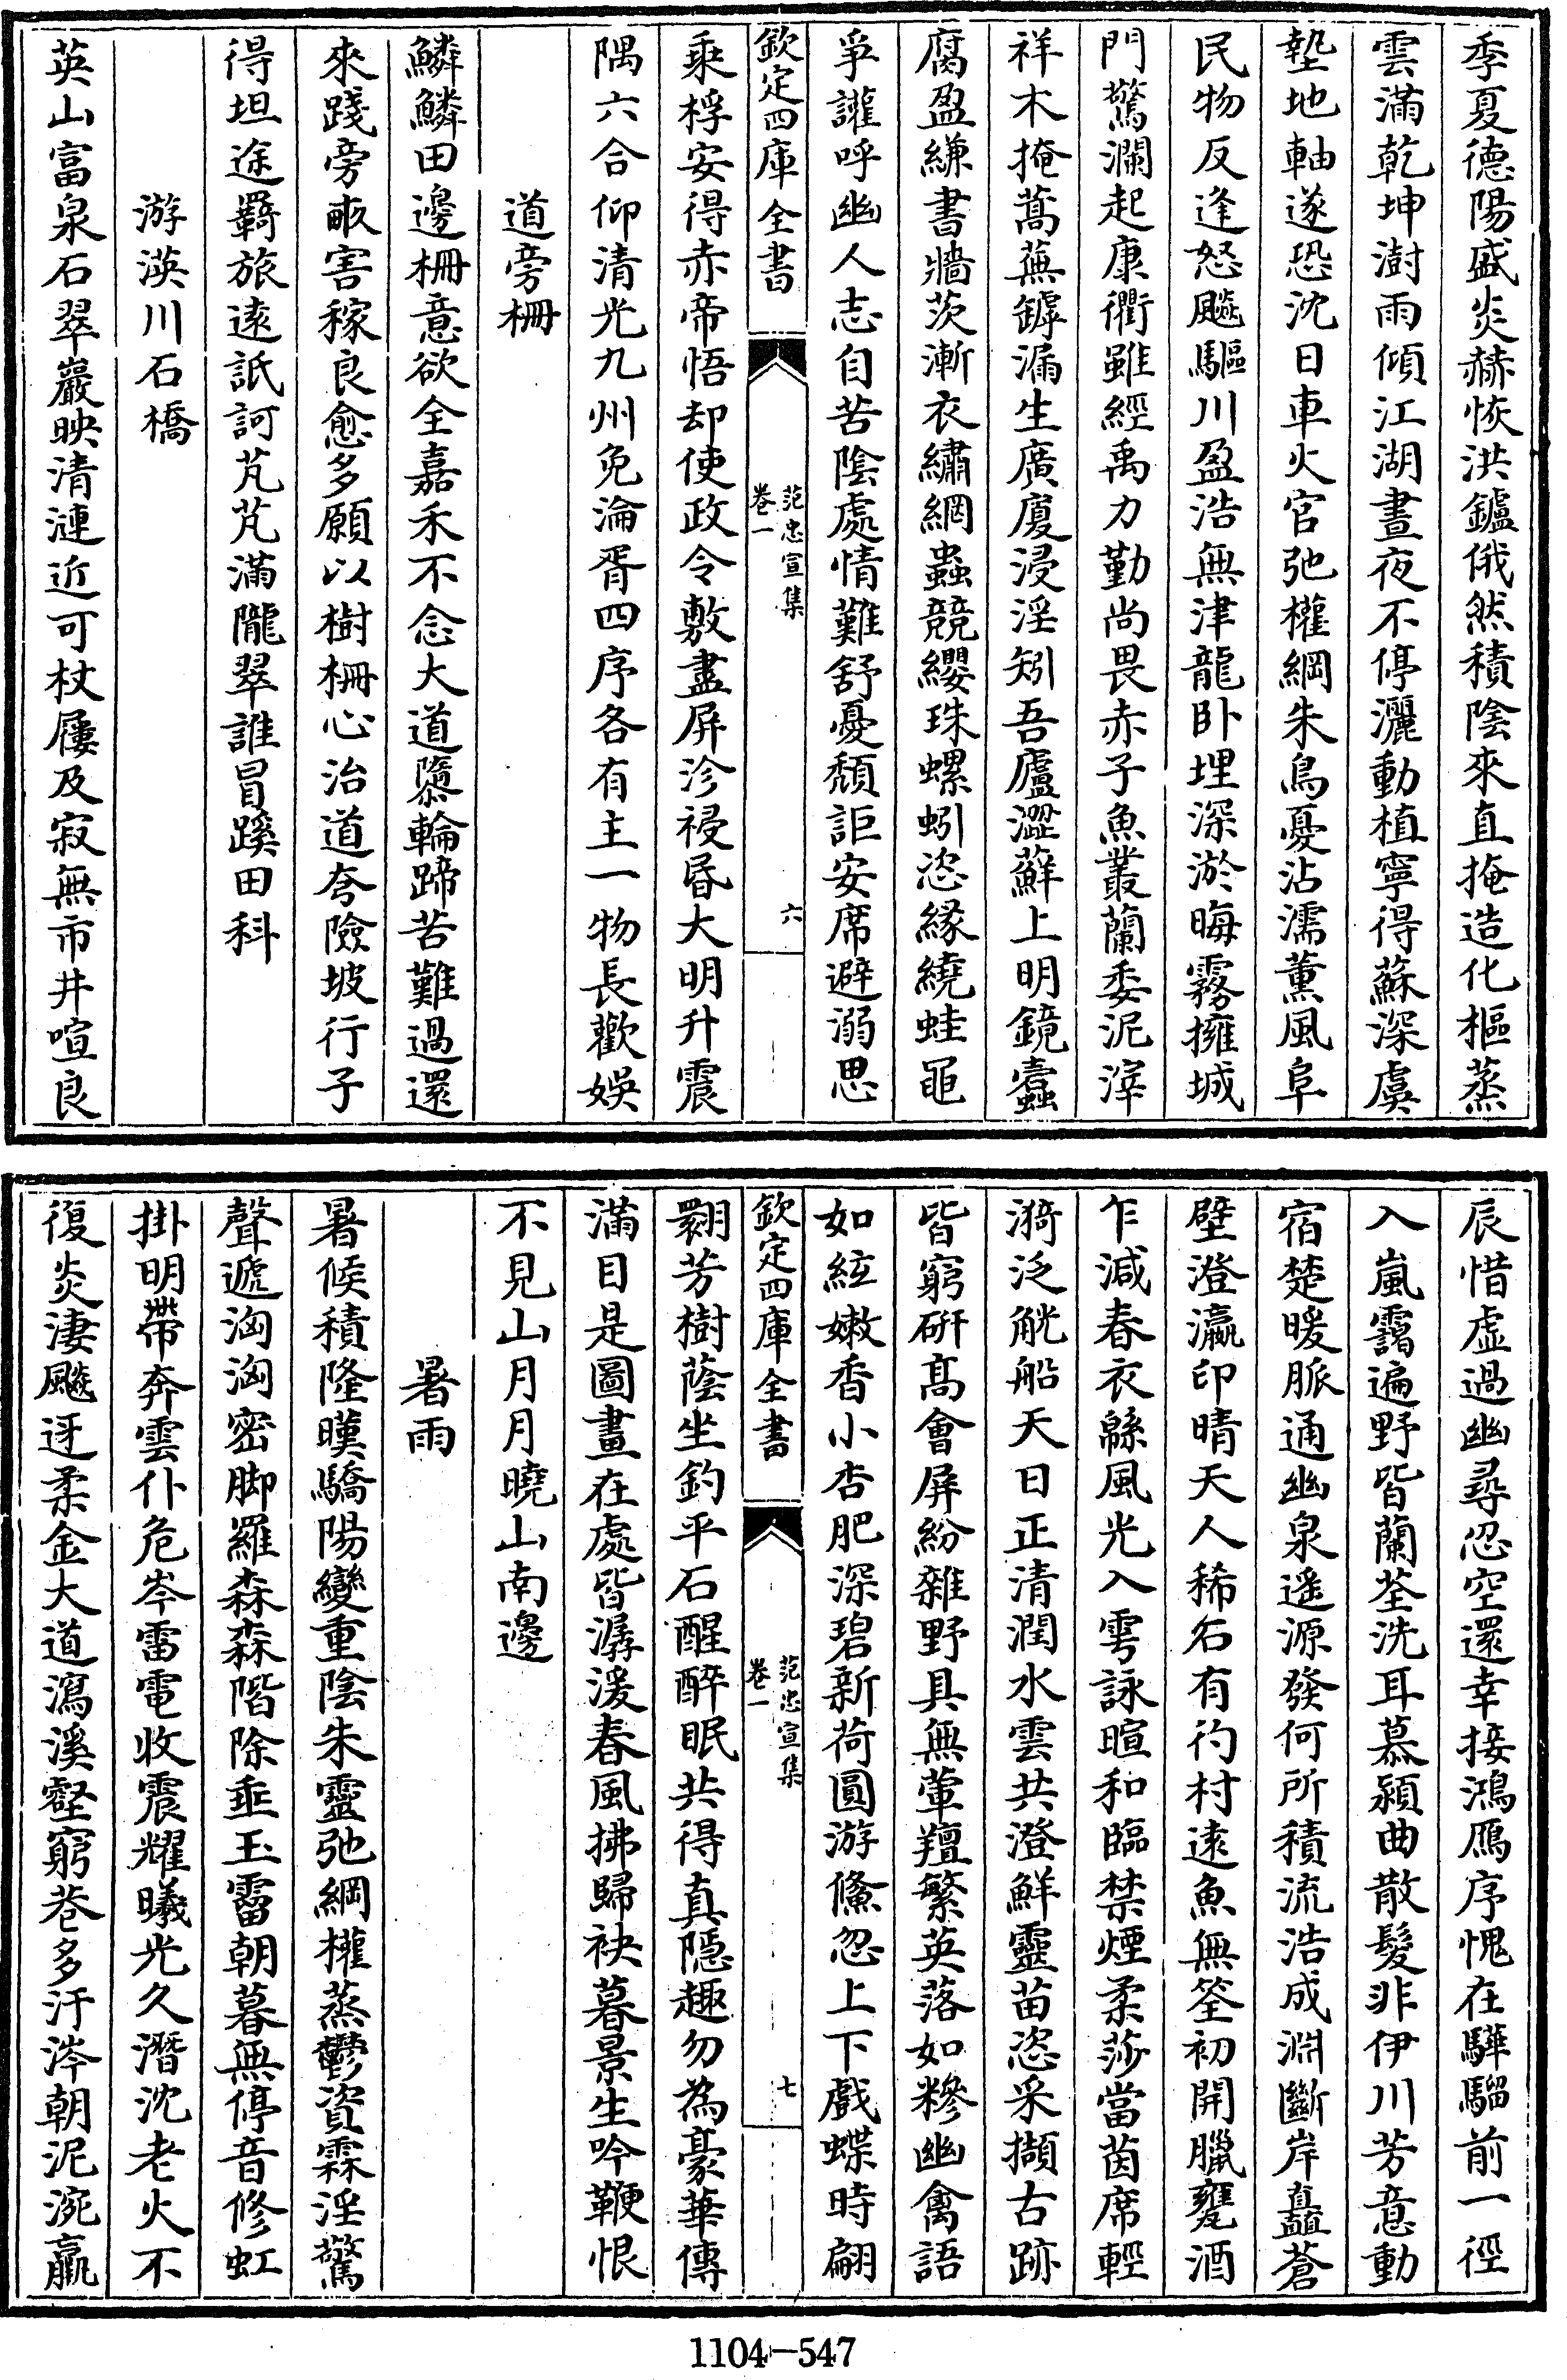 季夏德陽盛炎赫恢洪鑪俄然積陰來直掩造化樞蒸
雲滿乾坤澍雨傾江湖晝夜不停灑動植寧得蘇深虞
墊地軸遂恐沈日車火官弛權綱朱鳥憂沾濡薰風阜
民物反逢怒飈驅川盈浩無津龍卧埋深淤晦霧擁城
門驚瀾起康衢雖經禹力勤尚畏赤子魚叢蘭委泥滓
祥木掩蒿蕪鏬漏生廣廈浸淫矧吾廬澀蘚上明鏡蠹
腐盈縑書牆茨漸衣繡網蟲競纓珠螺蚓恣緣繞蛙黽
爭讙呼幽人志自苦陰處情難舒憂頹詎安席避溺思
欽定四庫全書
范忠宣集
卷一
六
乘桴安得赤帝悟却使政令敷盡屏沴祲昬大明升震
隅六合仰清光九州免淪胥四序各有主一物長歡娛
道旁柵
鱗鱗田邊柵意欲全嘉禾不念大道隳輪蹄苦難過還
來踐旁畝害稼良愈多願以樹柵心治道夸險坡行子
得坦途羇旅逺詆訶芃芃滿隴翠誰冒蹊田科
游渶川石橋
英山富泉石翠巖映清漣近可杖屨及寂無市井喧良
辰惜虛過幽尋忍空還幸接鴻鴈序愧在驊騮前一徑
入嵐靄遍野皆蘭荃洗耳慕潁曲散髮非伊川芳意動
宿楚暖脈通幽泉遥源發何所積流浩成淵斷岸矗蒼
壁澄瀛印晴天人稀石有彴村逺魚無筌初開臘甕酒
乍減春衣緜風光入雩詠暄和臨禁煙柔莎當茵席輕
漪泛觥船天日正清潤水雲共澄鮮靈苗恣采擷古跡
皆窮研髙會屏紛雜野具無葷羶繁英落如糝幽禽語
如絃嫩香小杏肥深碧新荷圓游鯈忽上下戲蝶時翩
欽定四庫全書
范忠宣集
卷一
七
翾芳樹蔭坐釣平石醒醉眠共得真隠趣勿為豪華傳
滿目是圖畫在處皆潺湲春風拂歸袂暮景生吟鞭恨
不見山月月曉山南邊
暑雨
暑候積隆暵驕陽變重陰朱靈弛綱權蒸鬱資霖淫驚
聲遞洶洶密脚羅森森階除垂玉霤朝暮無停音修虹
掛明帶奔雲仆危岑雷電收震耀曦光久潛沈老火不
復炎淒飈迓柔金大道瀉溪壑窮巷多汙涔朝泥涴羸
1104—547